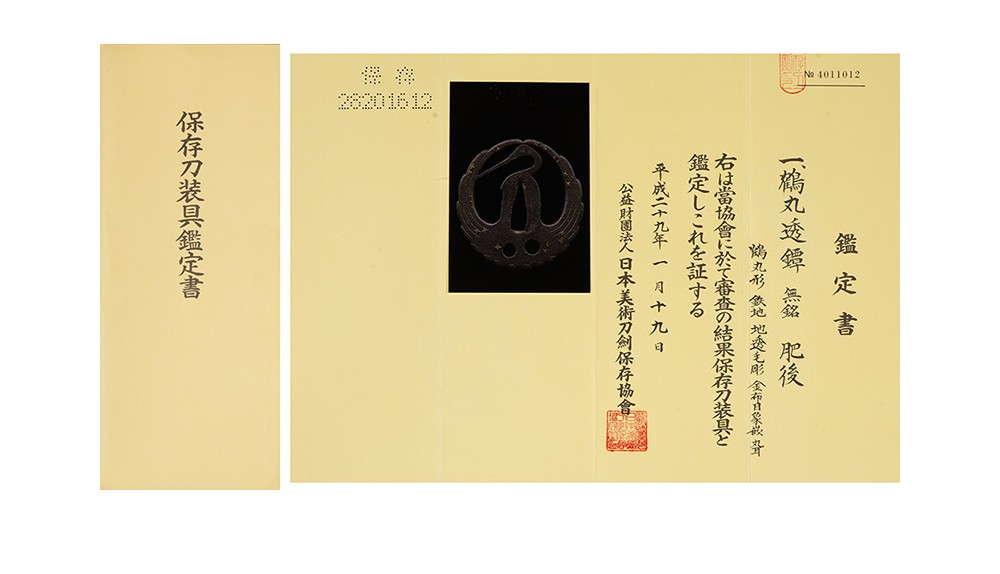 保存刀装具鑑定書
保存
28201612
№ 4011012
鑑定書
一、鶴丸透鐔 無銘 肥後
鶴丸形 鉄地 地透毛彫 金布目象嵌 丸耳
右は當協會に於て審査の結果保存刀装具と
鑑定しこれを証する
平成二十九年 一月十九日
公益財團法人 日本美術刀劍保存協會